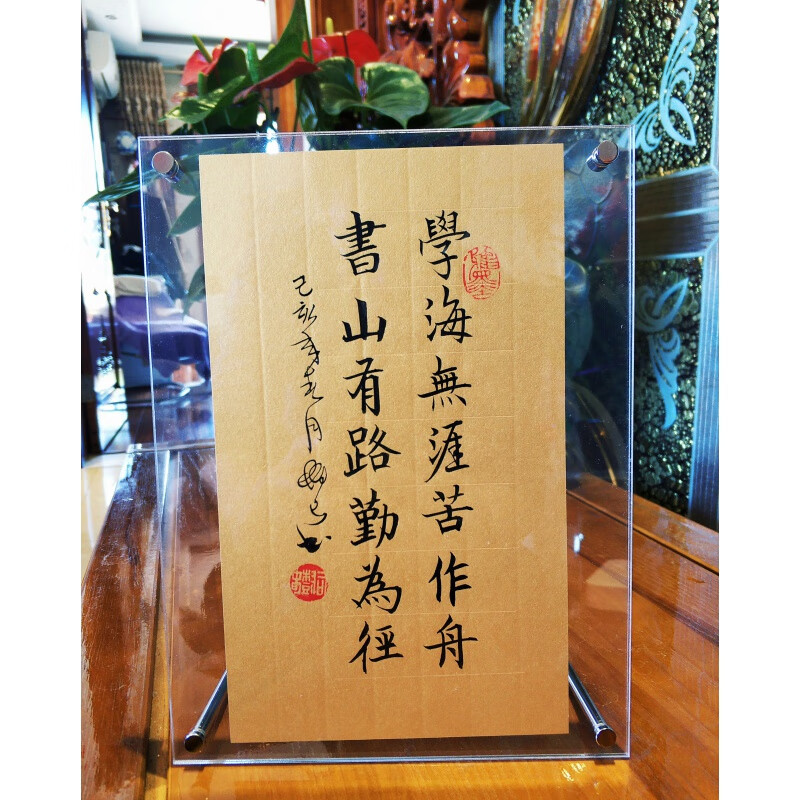 學海無涯苦作舟
書山有路勤為徑
己亥年
月